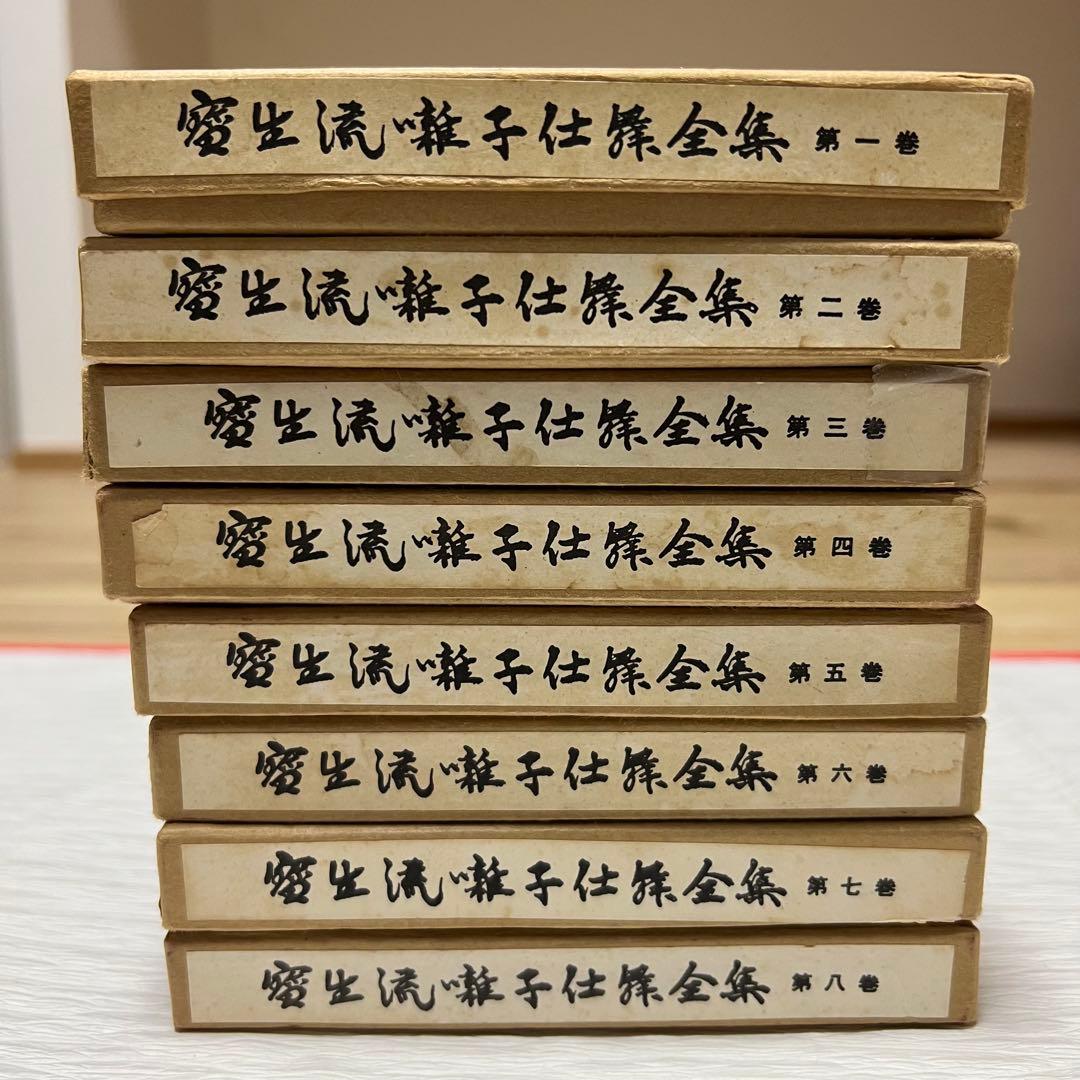 寳生流囃子仕舞全集 第一巻
寳生流囃子仕舞全集 第二巻
寳生流囃子仕舞全集 第三巻
寳生流囃子仕舞全集 第四巻
寳生流囃子仕舞全集 第五巻
寳生流囃子仕舞全集 第六巻
寳生流囃子仕舞全集 第七巻
寳生流囃子仕舞全集 第八巻